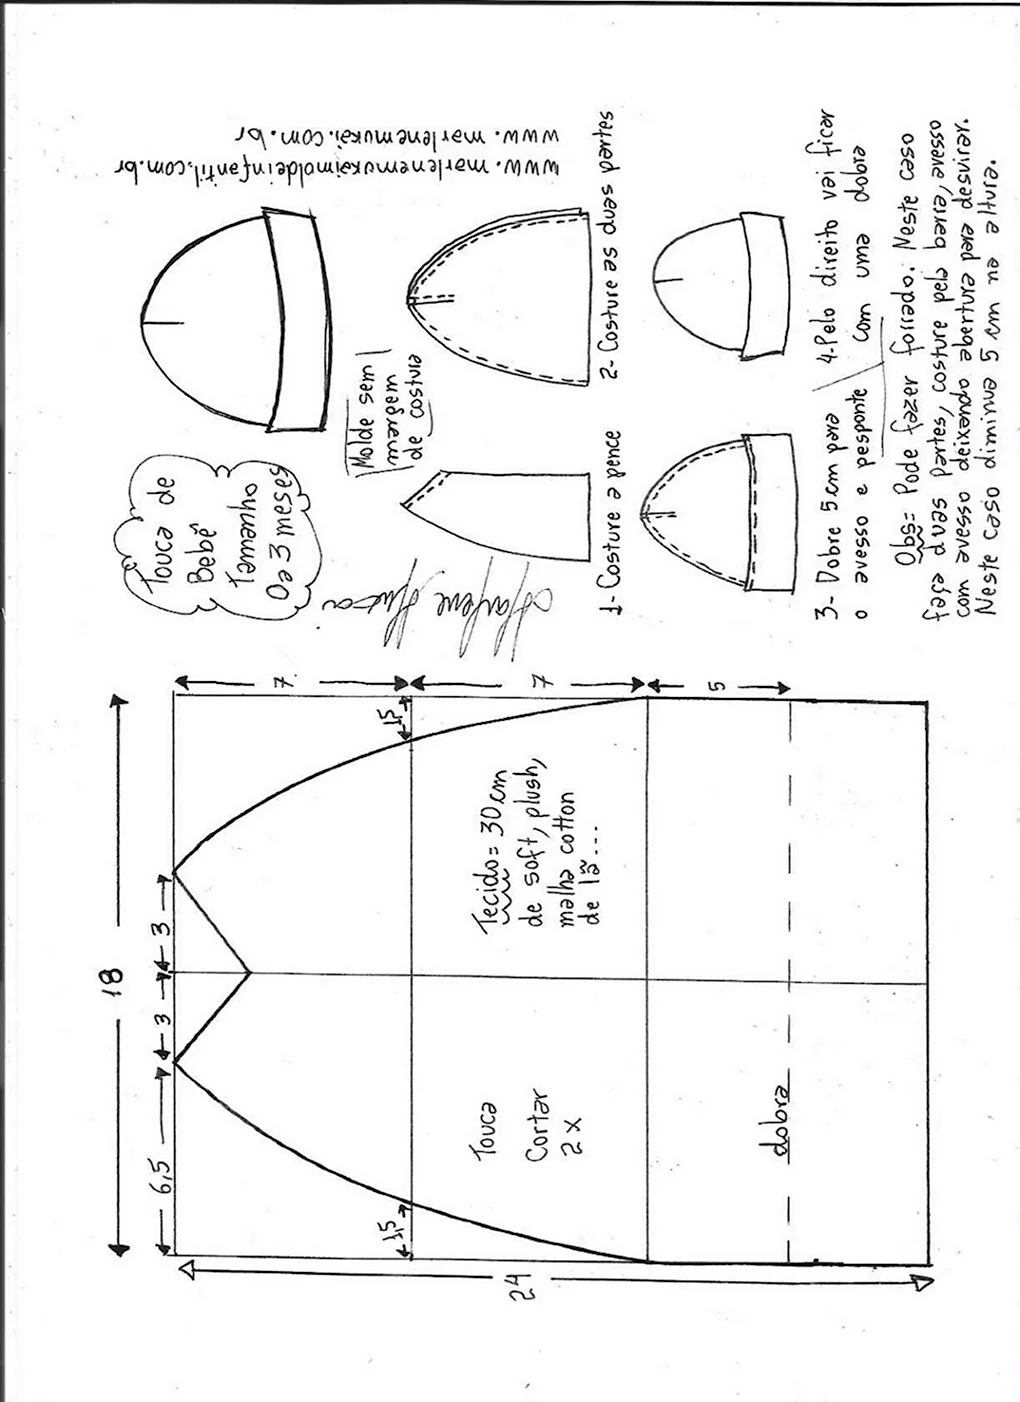 www.marlenemukaimoldeinfantil.com.br
www.marlenemukai.com.br
Touca de
Bebê
Tamanho
0 a 3 meses
Molde sem
margem
de costura
1- Costure a pence
2- Costure as duas partes
3- Dobre 5 cm para
o avesso e pesponte
4- Pelo direito vai ficar
com uma dobra
Obs= Pode fazer forrado. Neste caso
faça duas partes, costure pela barra, avesso
com avesso deixando abertura para desvirar.
Neste caso diminua 5 cm na altura.
18
6,5
3
3
7
7
5
1,5
1,5
24
Touca
Cortar
2x
Tecido= 30 cm
de soft, plush,
malha cotton
de lã...
dobra